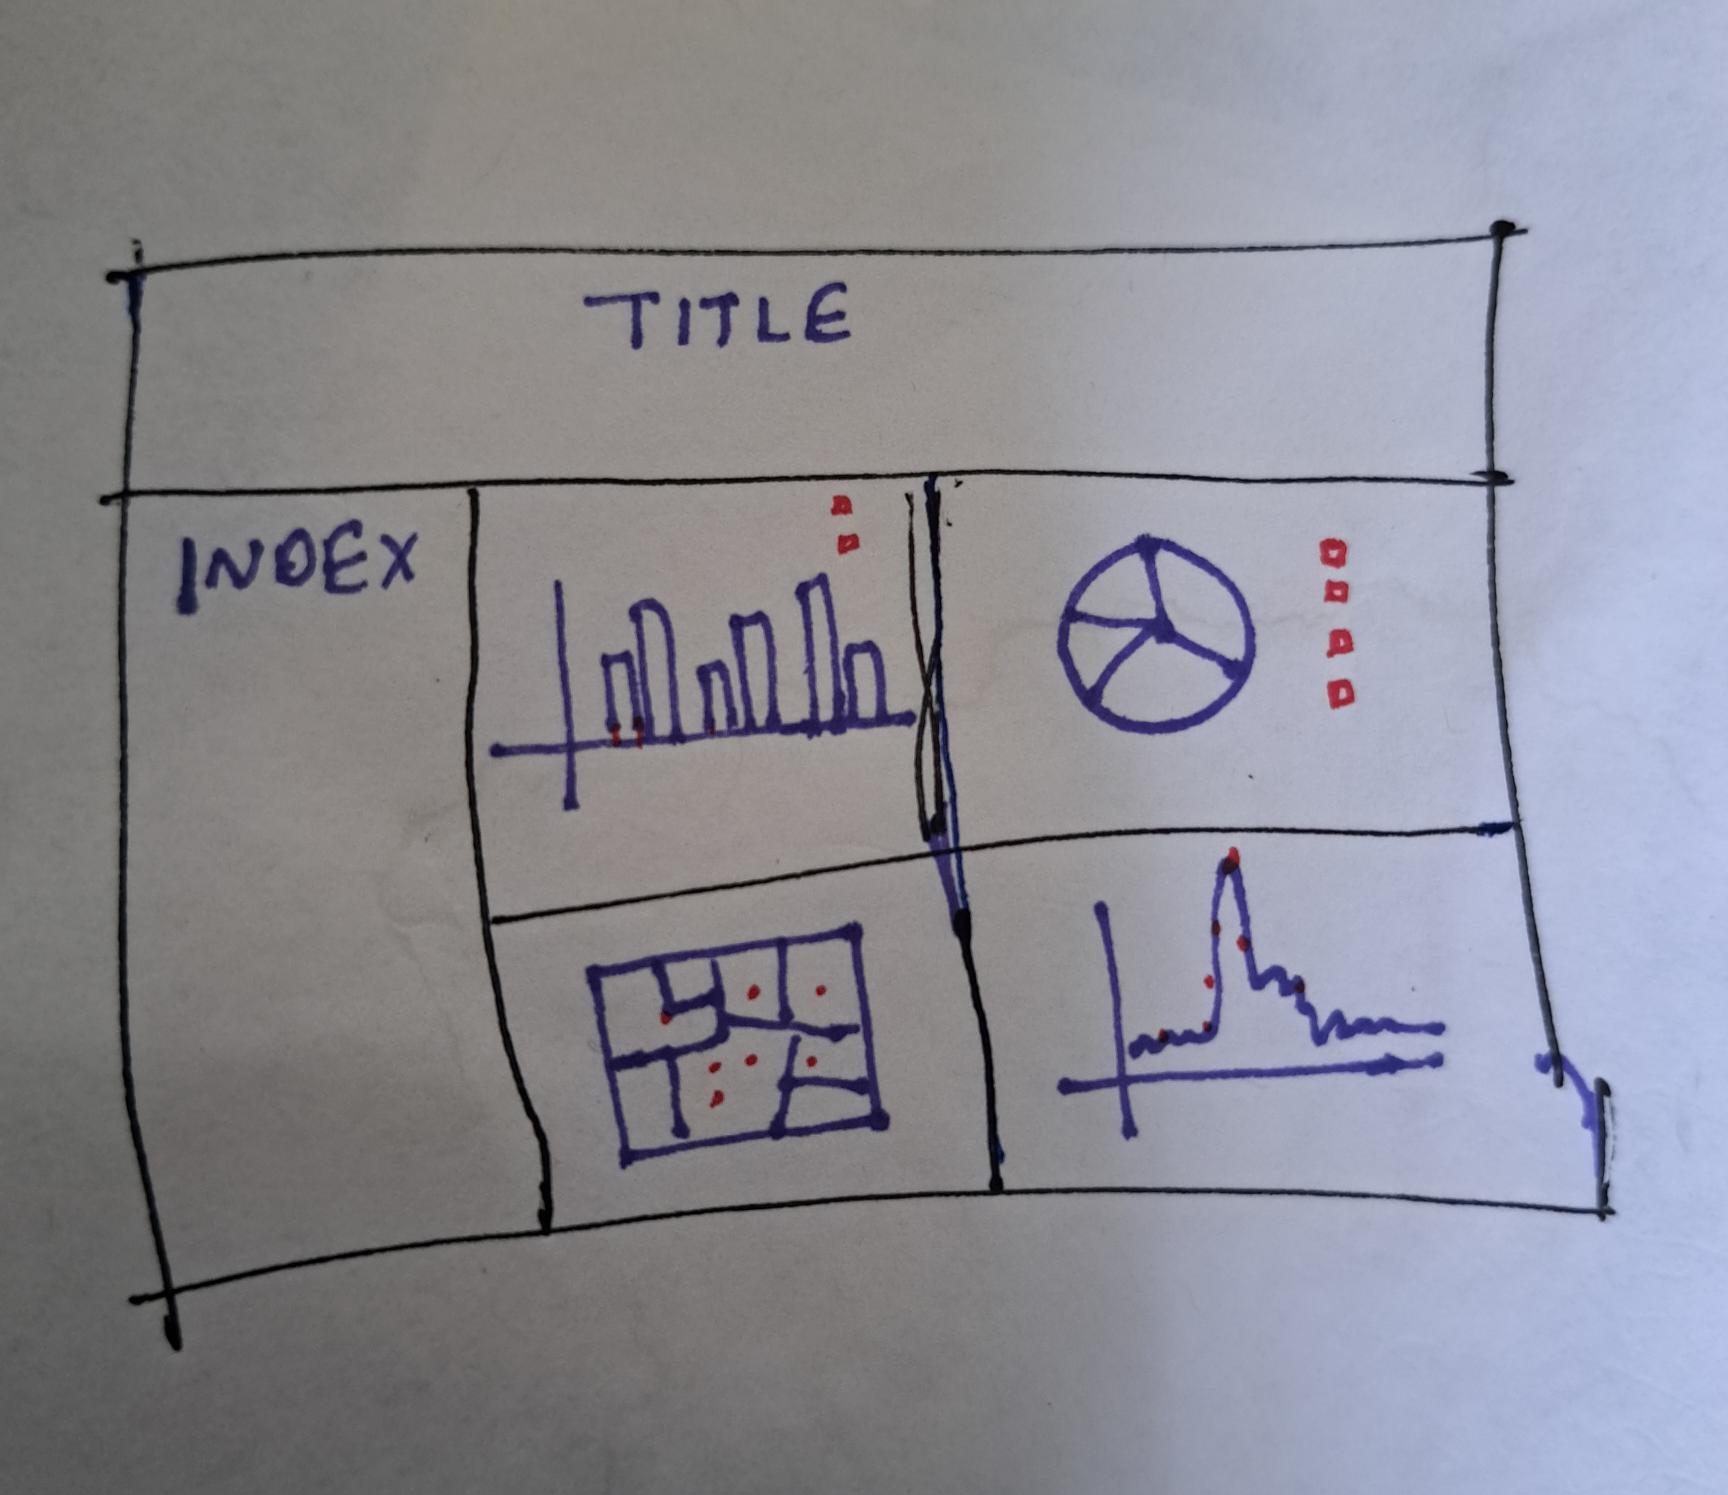 TITLE
INDEX